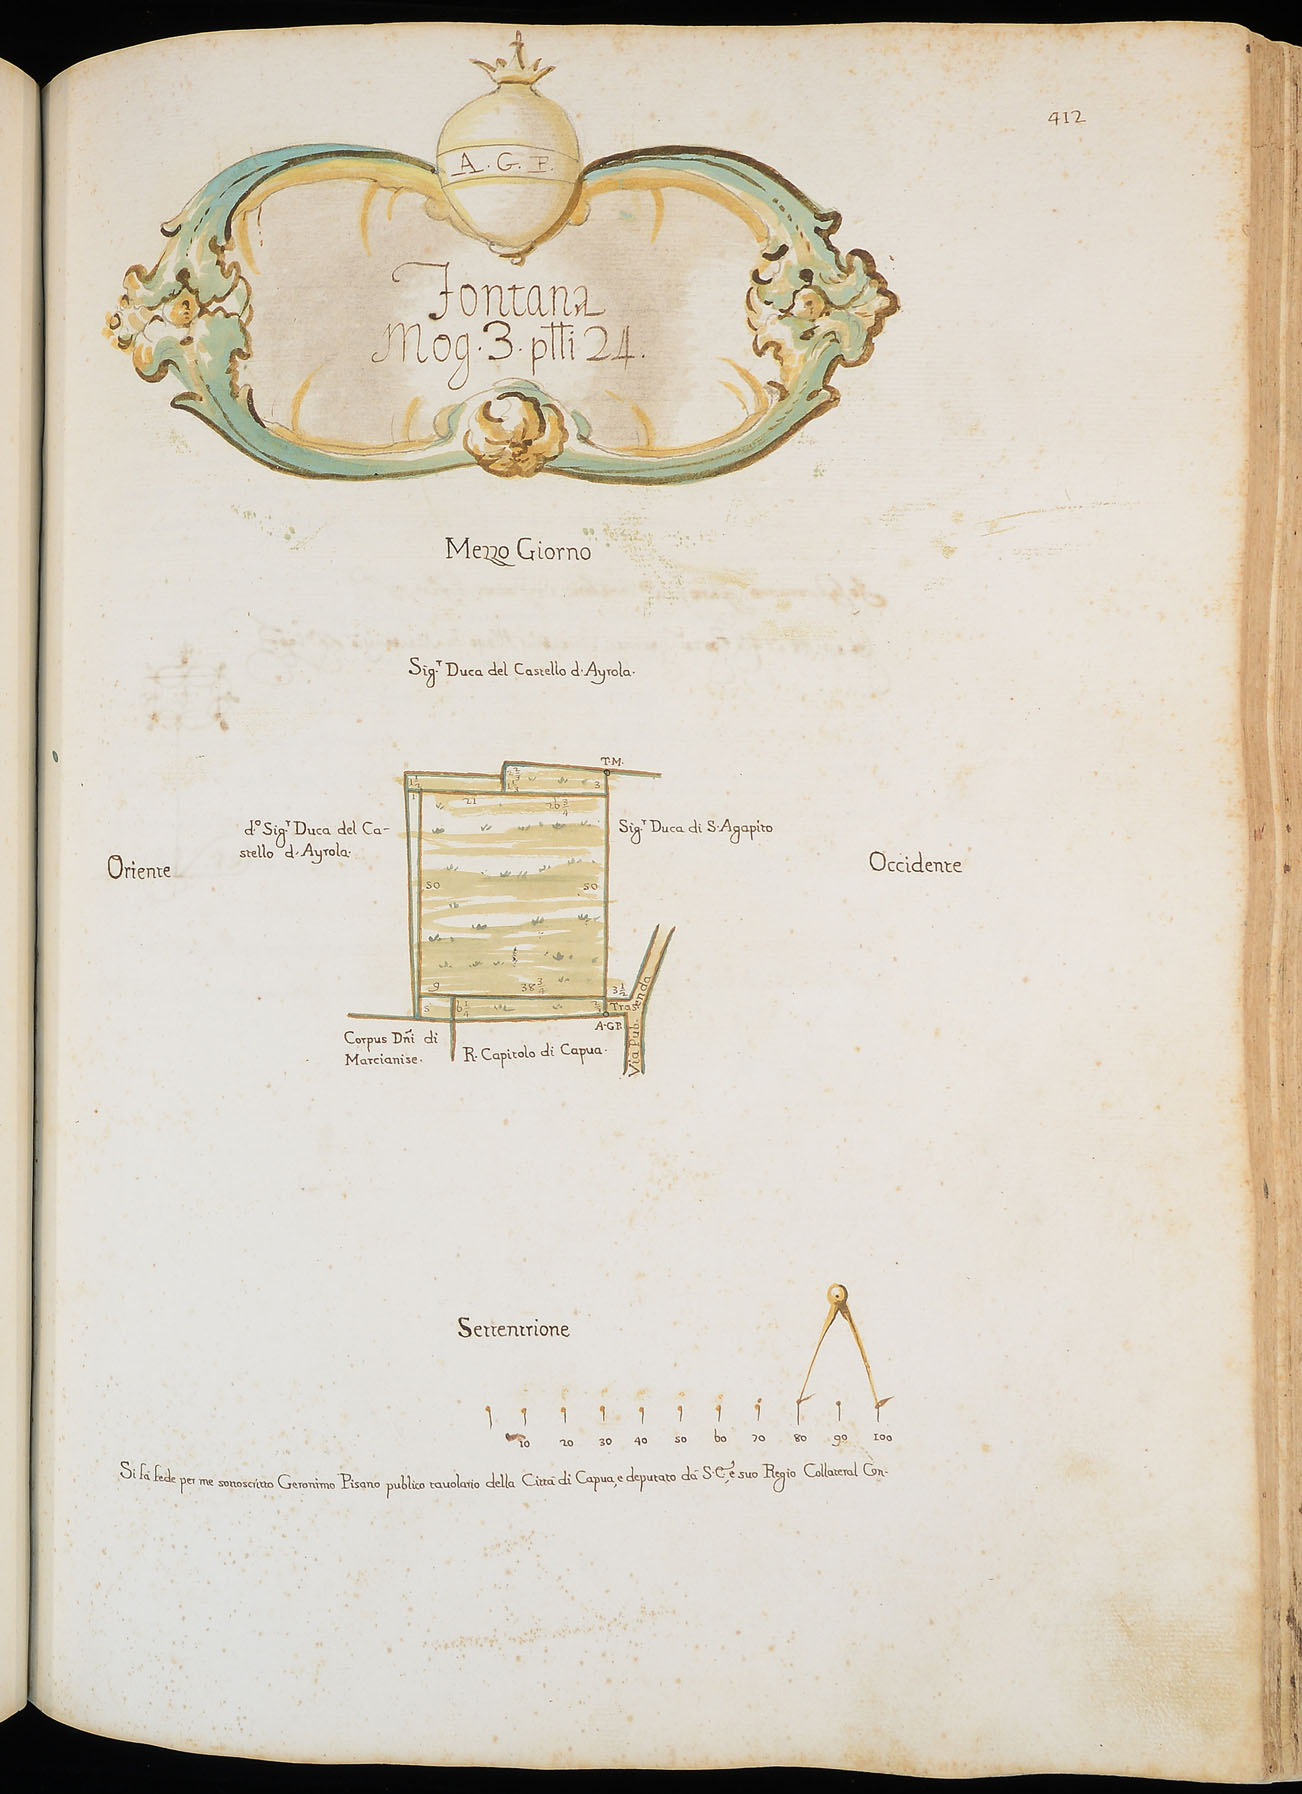 412
A. G. P.
Fontana
Mog. 3. ptti 24.
Mezzo Giorno
Sig.r Duca del Castello d'Ayrola.
T.M.
1 1/2
3
1
21
26 3/4
d.o Sig.r Duca del Ca-
stello d'Ayrola.
Sig.r Duca di S. Agapito
Oriente
Occidente
50
50
9
38 3/4
3 1/2
5
6 1/4
Trasenda
A.G.P.
Via Pub.
Corpus Dñi di
Marcianise.
R. Capitolo di Capua.
Settentrione
10 20 30 40 50 60 70 80 90 100
Si fà fede per me sottoscritto Geronimo Pisano publico tavolario della Città di Capua, e deputato dà S.C., è suo Regio Collateral Con-